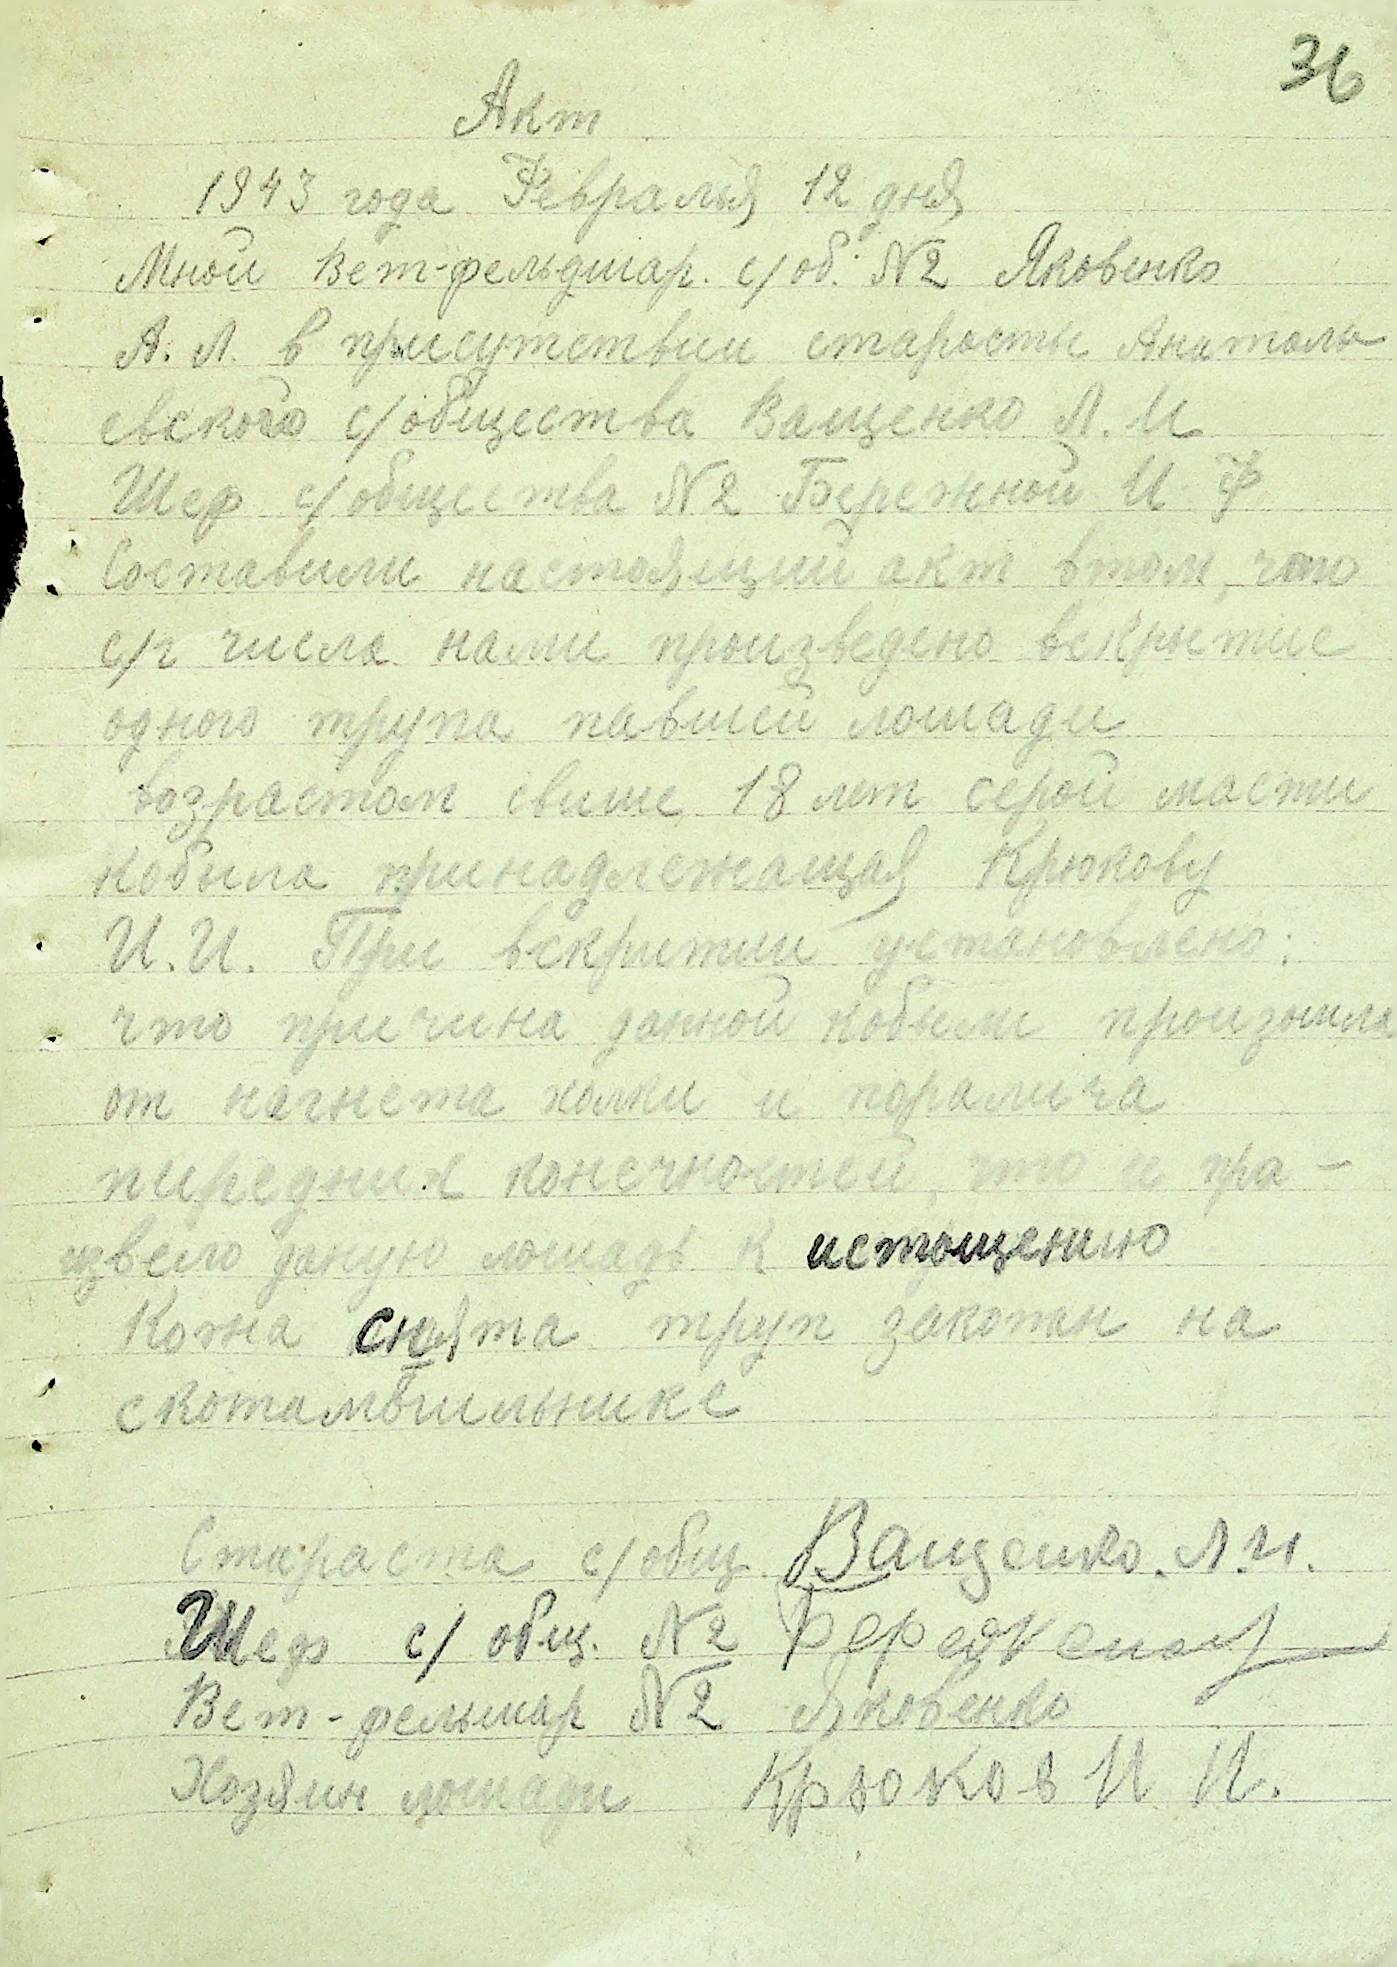 36
Акт
1943 года Февралья 12 дня
Мной Вет-фельдшар. с/об. №2 Яковенко
А. Л. в присутствии старосты Анатоль
евского с/общества Ващенко Л. И
Шеф с/общества №2 Бережной И Ф
Составили настоящий акт втом, что
с/г числа нами произведено вскрытие
одного трупа павшей лошади
возрастом свише 18 лет серой масти
кобыла принадлежащая Крюкову
И. И. При вскритии установлено:
что причина данной кобыли произошла
от нагнета холки и поралича
пиредних конечностей, что и пра-
извело даную лошадь к истощению
Кожа снята труп закопан на
скотамбильнике
Стараста с/общ. Ващенко. Л. И.
Шеф с/ общ. №2 Бережной
Вет-фельшар №2 Яковенко
Хозяин лошади Крюков И И.